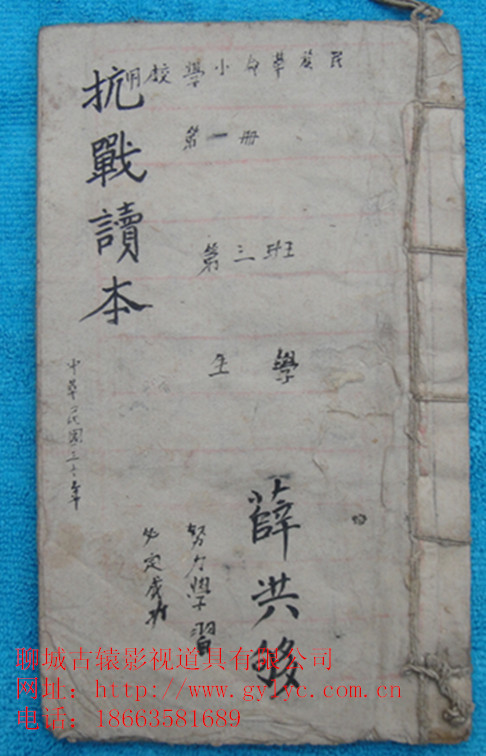 民族革命小學校用
抗戰讀本
第一册
第三班
學生
薛洪
努力學習
必定成功
中華民國三年
聊城古辕影视道具有限公司
网址: http://www.gylyc.com.cn
电话: 18663581689